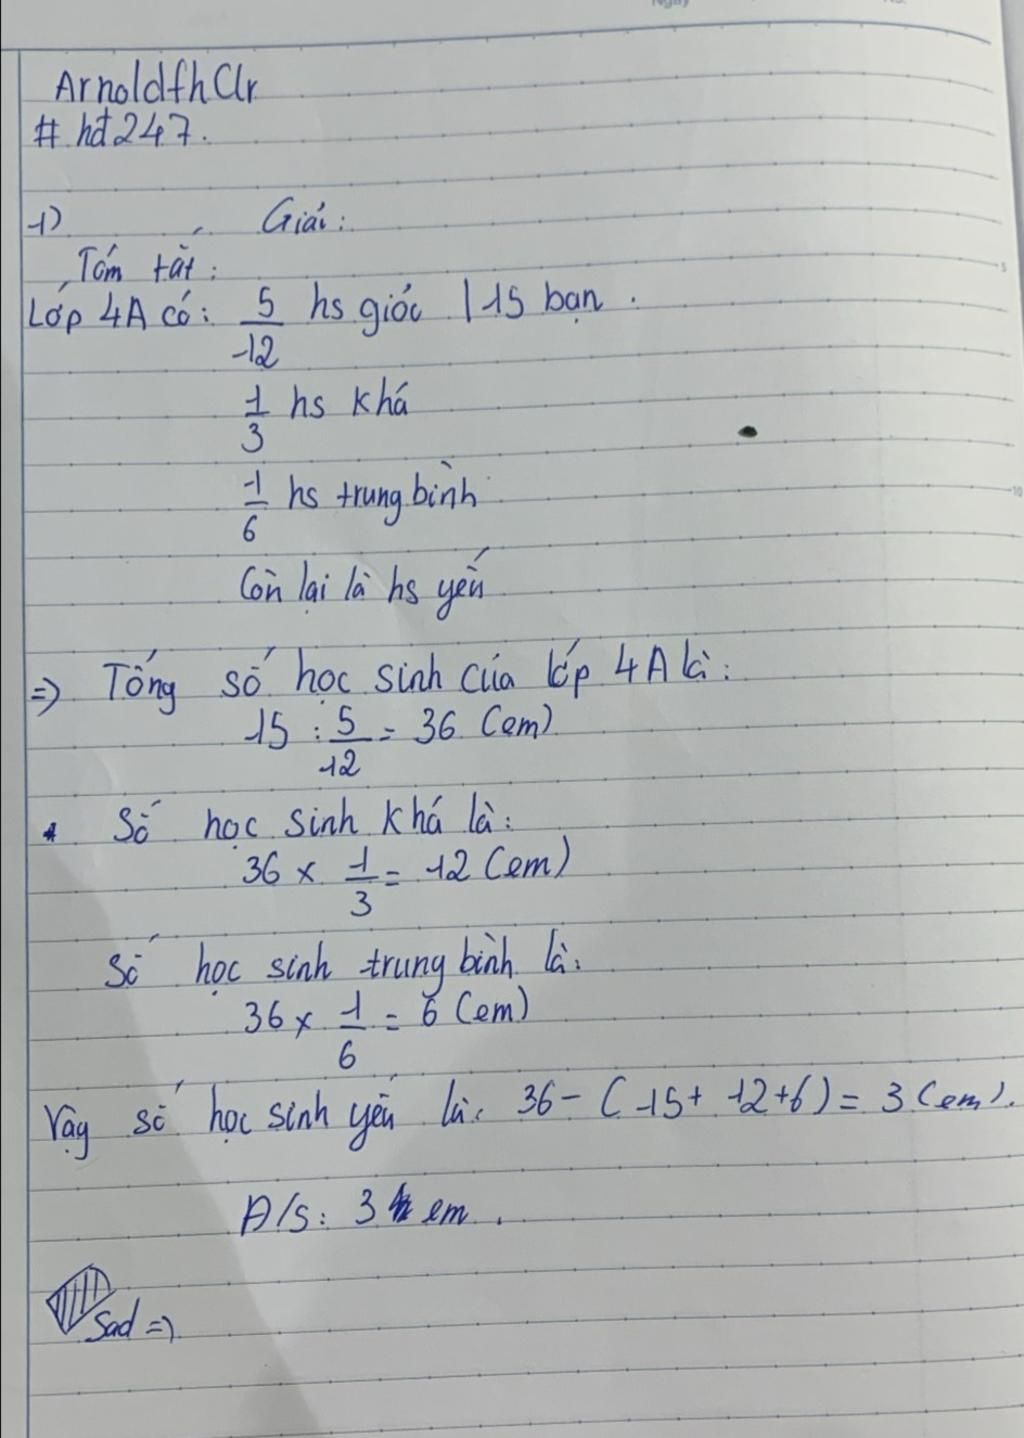 Ngày
ArnoldfhClr
# hđ247.
1) Giải:
Tóm tắt:
Lớp 4A có: 5/12 hs giỏi | 15 bạn.
1/3 hs khá
1/6 hs trung bình
Còn lại là hs yếu
=> Tổng số học sinh của lớp 4A là:
15 : 5/12 = 36 (em)
Số học sinh khá là:
36 x 1/3 = 12 (em)
Số học sinh trung bình là:
36 x 1/6 = 6 (em)
Vậy số học sinh yếu là: 36 - (15 + 12 + 6) = 3 (em).
Đ/S: 3 em.
Sad =)
5
10